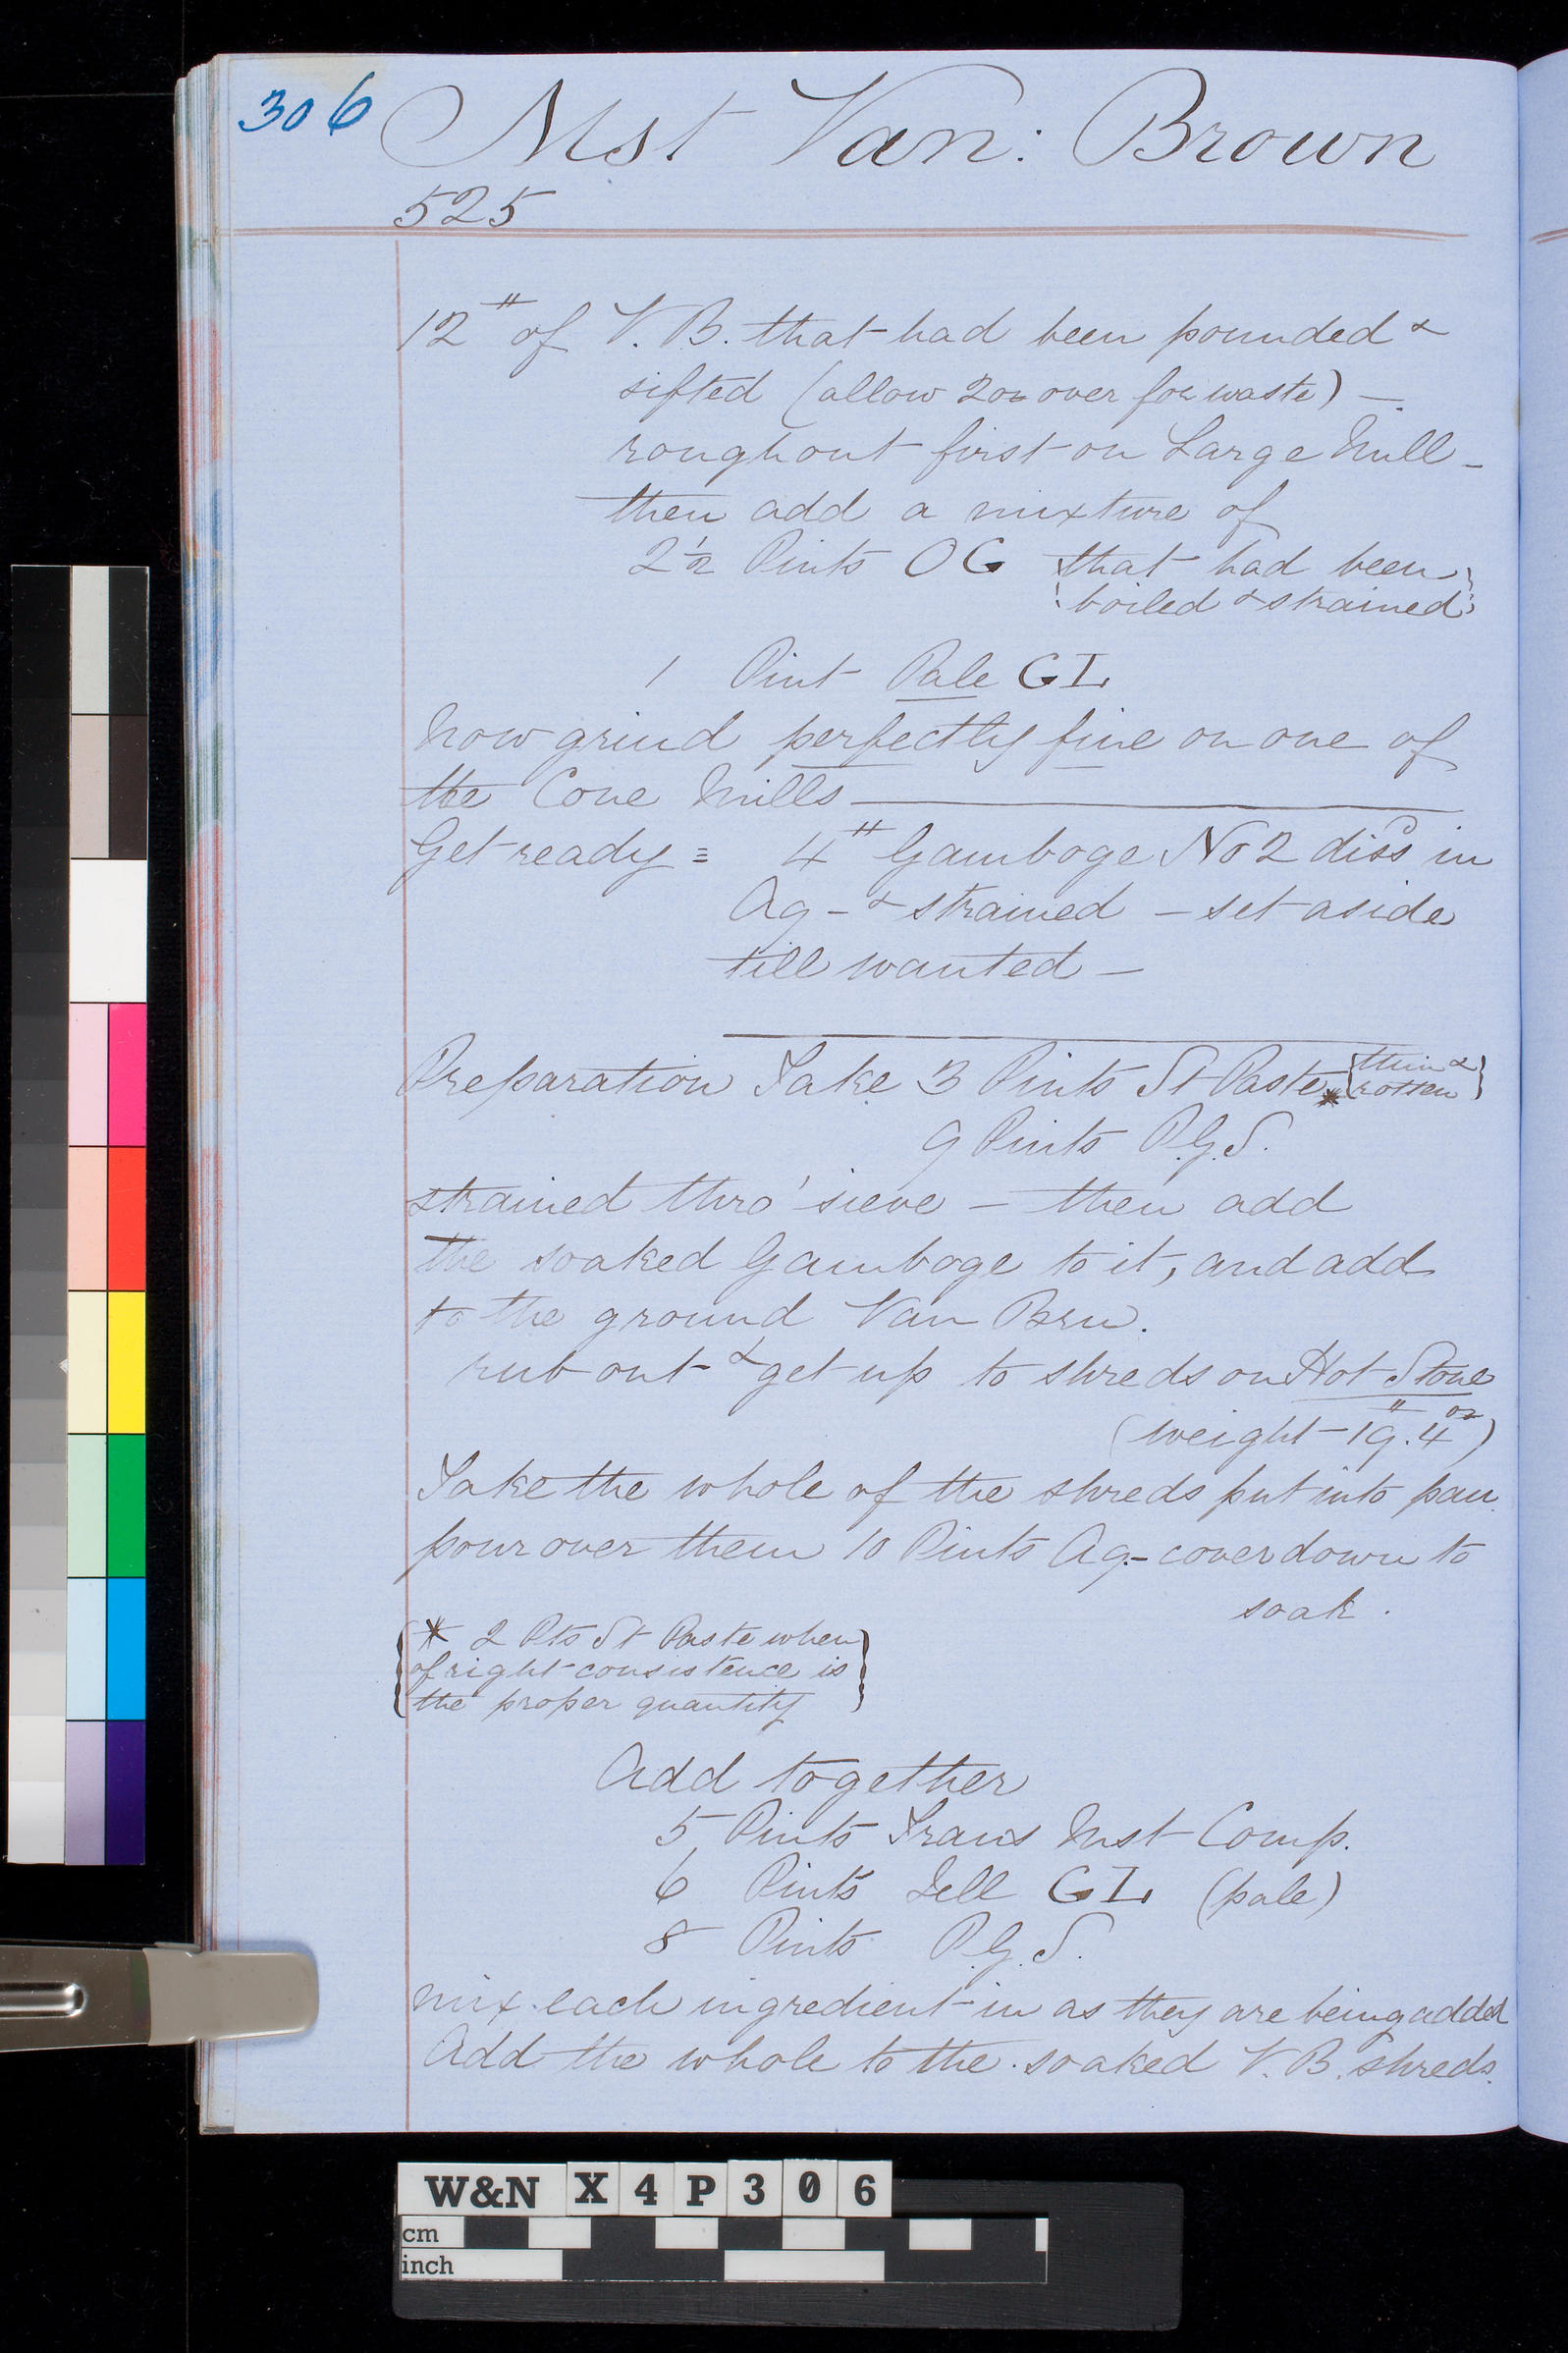 306 Mst Van: Brown
525
12# of V.B. that had been pounded &
sifted (allow 2oz over for waste) —
roughout first on Large Mill -
then add a mixture of
2½ Pints OG {that had been
boiled & strained}
1 Pint Pale GL
Now grind perfectly fine on one of
the Cone Mills —
Get ready = 4# Gamboge No 2 dissd in
Aq - & strained - set aside
till wanted -
Preparation Take 3 Pints St Paste * {thin &
rotten}
9 Pints P.G.S.
strained thro' sieve - then add
the soaked Gamboge to it, and add
to the ground Van Brn.
rub out & get up to shreds on Hot Stone
(weight - 19#.4oz)
Take the whole of the shreds put into pan
pour over them 10 Pints Aq - cover down to
soak.
{* 2 Pts St Paste when
of right consistence is
the proper quantity}
Add together
5 Pints Trans Mst Comp.
6 Pints Jell GL (pale)
8 Pints P.G.S.
mix each ingredient in as they are being added
Add the whole to the soaked V.B. shreds.
W&N X4P306
cm
inch